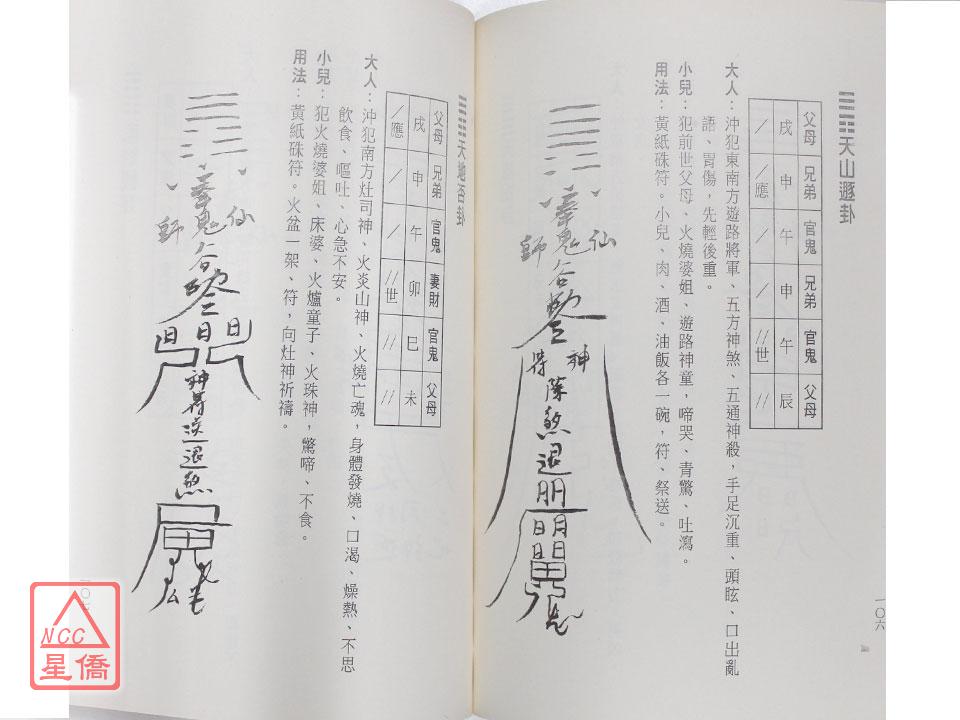 天山遯卦
父母 兄弟 官鬼 兄弟 官鬼 父母
戌 申 午 申 午 辰
/ /應 / / //世 //
大人：沖犯東南方遊路將軍、五方神煞、五通神殺，手足沉重、頭眩、口出亂
語、胃傷，先輕後重。
小兒：犯前世父母、火燒婆姐、遊路神童，啼哭、青驚、吐瀉。
用法：黃紙硃符。小兒、肉、酒、油飯各一碗，符、祭送。
奉鬼谷
仙
師
神
符
煞退
一〇六
天地否卦
父母 兄弟 官鬼 妻財 官鬼 父母
戌 申 午 卯 巳 未
/應 / / //世 // //
大人：沖犯南方灶司神、火炎山神、火燒亡魂，身體發燒、口渴、燥熱、不思
飲食、嘔吐、心急不安。
小兒：犯火燒婆姐、床婆、火爐童子、火珠神，驚啼、不食。
用法：黃紙硃符。火盆一架、符，向灶神祈禱。
奉鬼谷
仙
師
日日日
神符
退煞
NCC
星僑